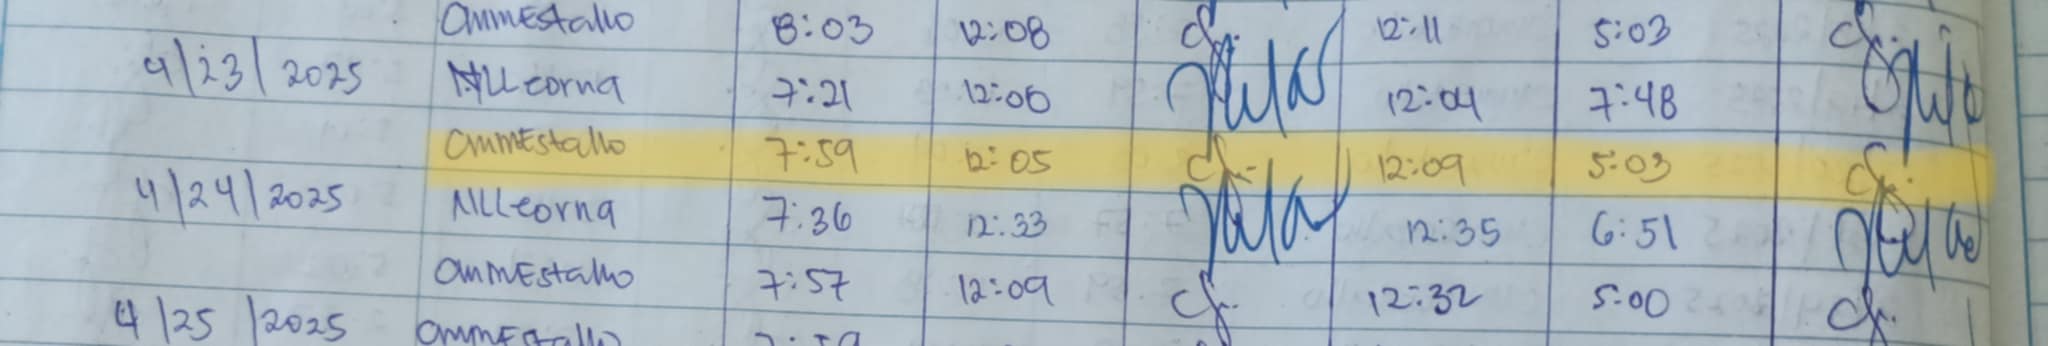 CMMEstallo 8:03 12:08 12:11 5:03
4/23/2025 NLLeorna 7:21 12:00 12:04 7:48
CMMEstallo 7:59 12:05 12:09 5:03
4/24/2025 NLLeorna 7:36 12:33 12:35 6:51
CMMEstallo 7:57 12:09 12:32 5:00
4/25/2025 CMMEstallo 7:59